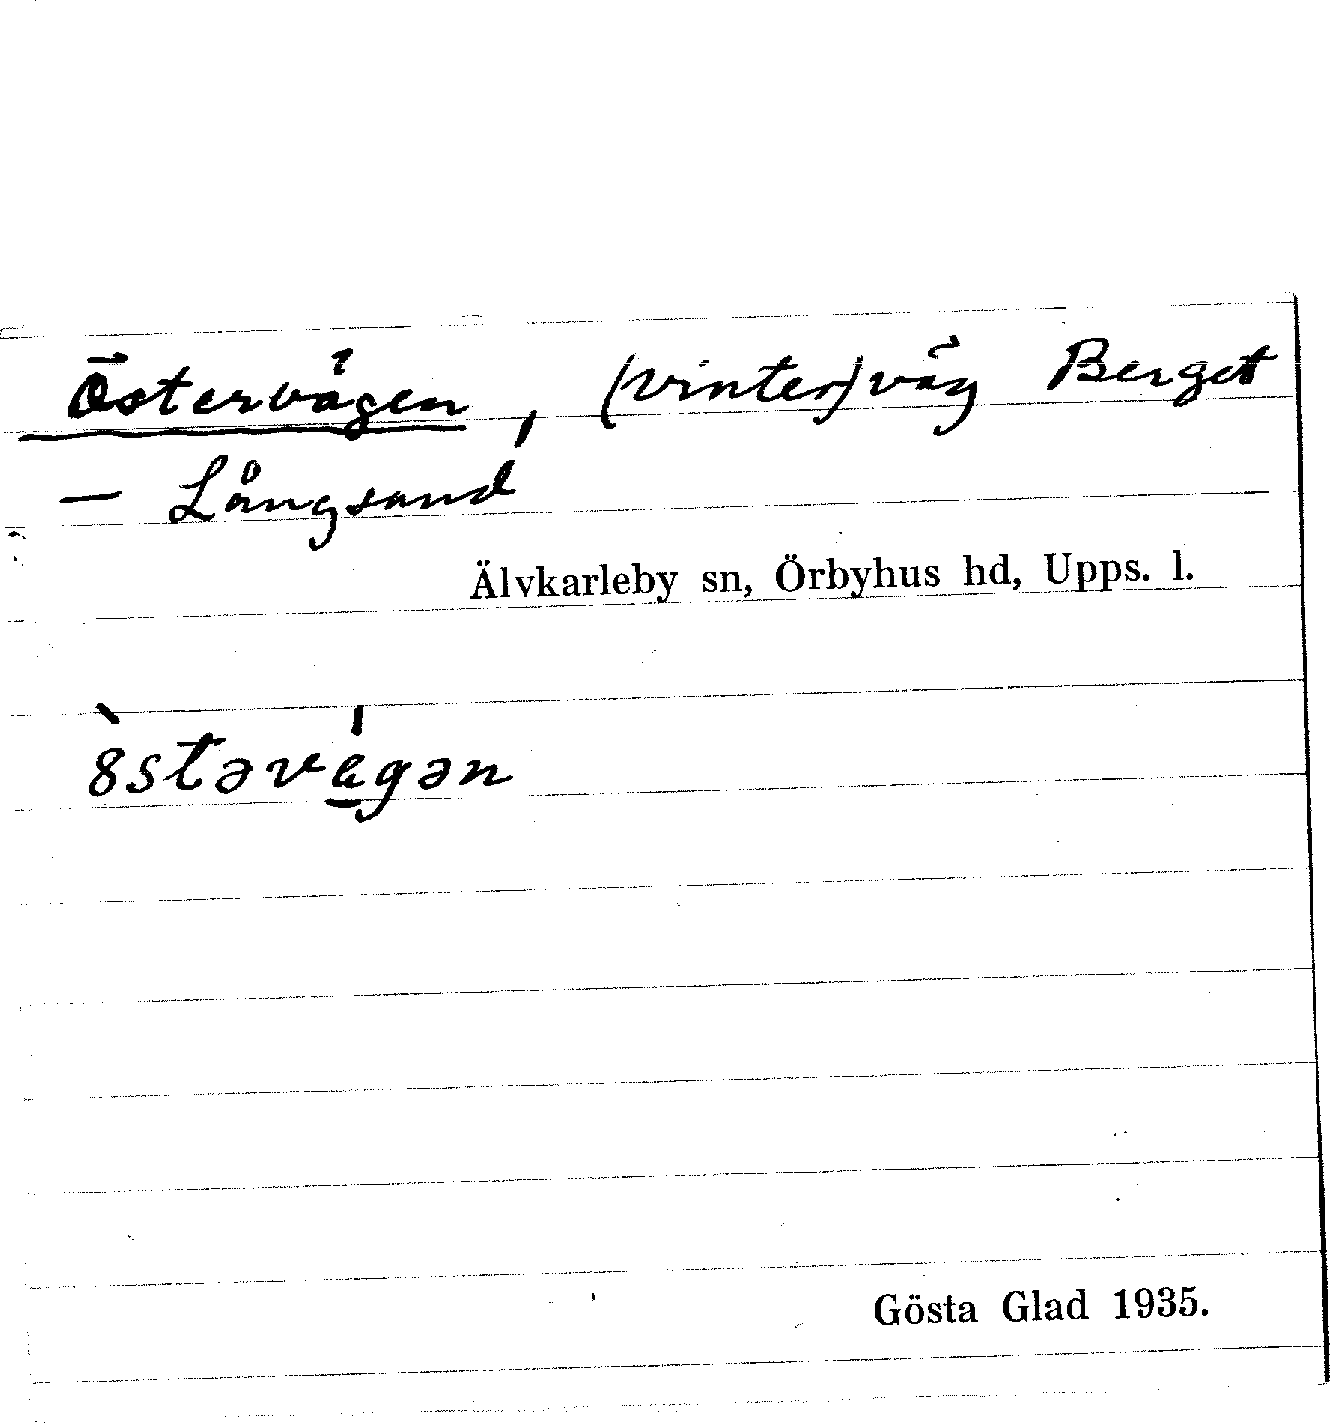 Östervägen, (vinter)väg Berget
— Långsand
Älvkarleby sn, Örbyhus hd, Upps. l.
8̀stəvé̱gən
Gösta Glad 1935.